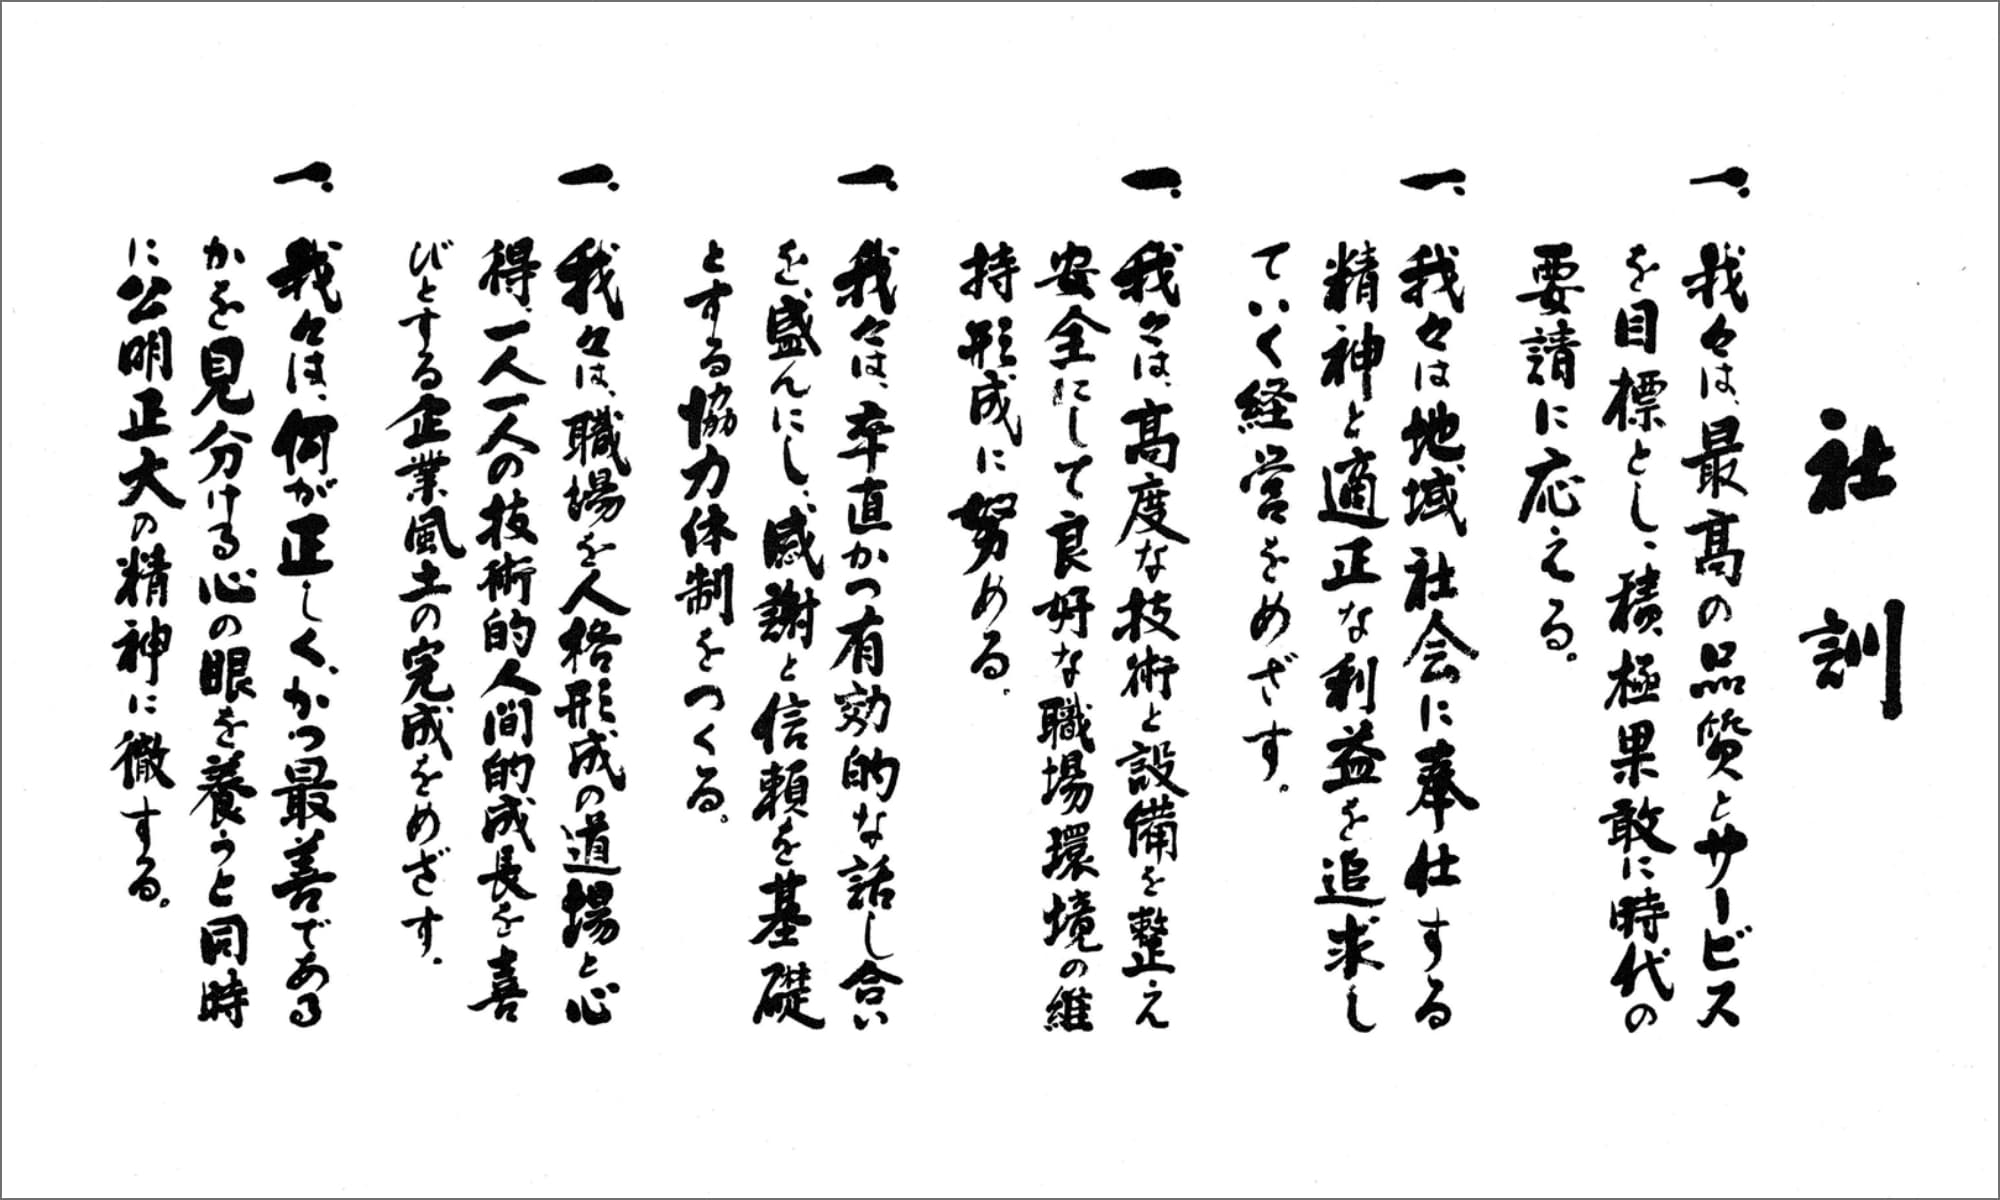 社訓
一、我々は、最高の品質とサービス
を目標とし、積極果敢に時代の
要請に応える。
一、我々は地域社会に奉仕する
精神と適正な利益を追求し
ていく経営をめざす。
一、我々は、高度な技術と設備を整え
安全にして良好な職場環境の維
持形成に努める。
一、我々は、率直かつ有効的な話し合い
を、盛んにし、感謝と信頼を基礎
とする協力体制をつくる。
一、我々は、職場を人格形成の道場と心
得、一人一人の技術的人間的成長を喜
びとする企業風土の完成をめざす。
一、我々は、何が正しく、かつ最善である
かを見分ける心の眼を養うと同時
に公明正大の精神に徹する。